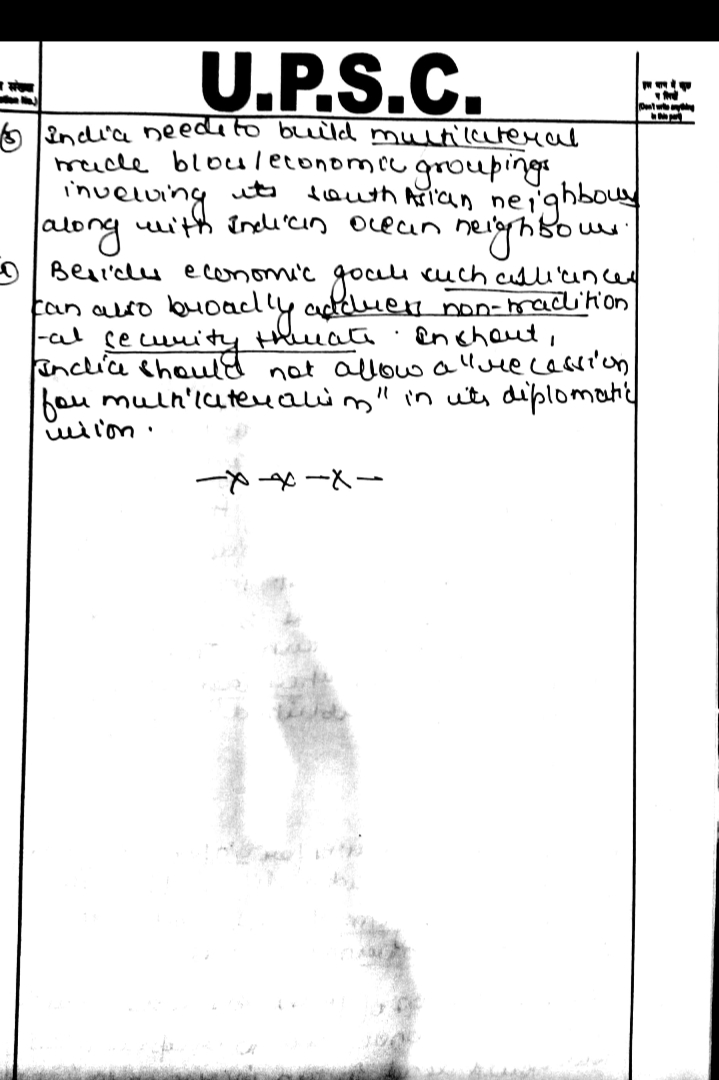 U.P.S.C.
(Don't write anything
in this part)
⑤ India needs to build multilateral
trade blocs/economic groupings
involving its South Asian neighbours
along with Indian Ocean neighbours.
Besides economic goals such alliances
can also broadly address non-tradition
-al security threats. In short,
India should not allow a "recession
for multilateralism" in its diplomatic
vision.
—x—x—x—